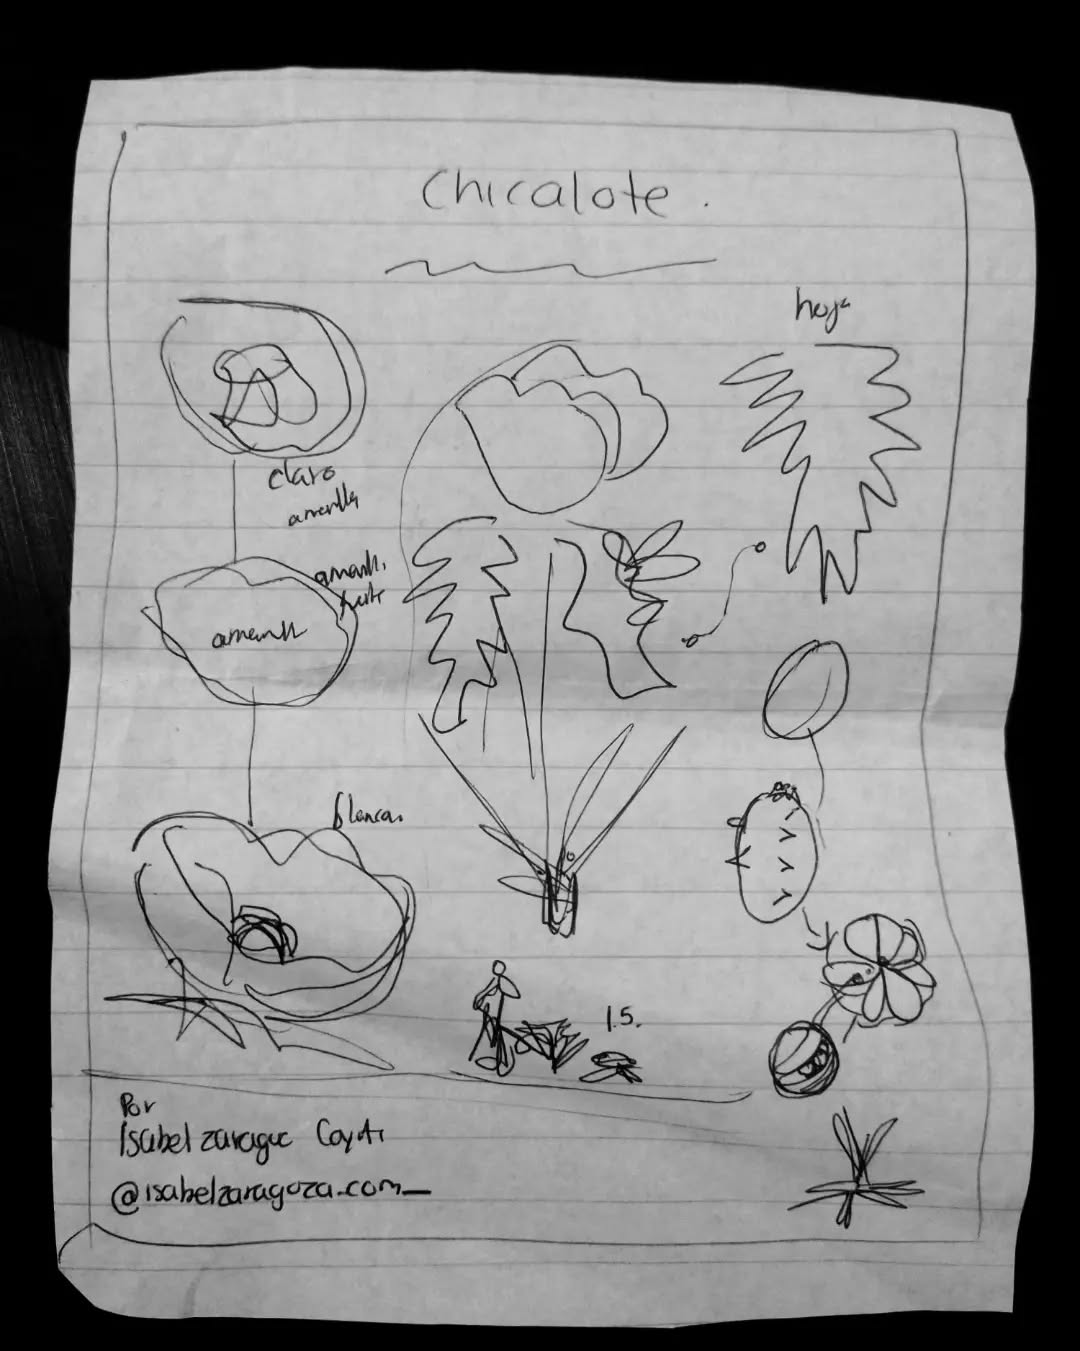 Chicalote.
hoja
claro
amarillo
amarill.
fuerte
amarill
blanca.
1.5.
Por
Isabel Zaragoza
@isabelzaragoza.com_